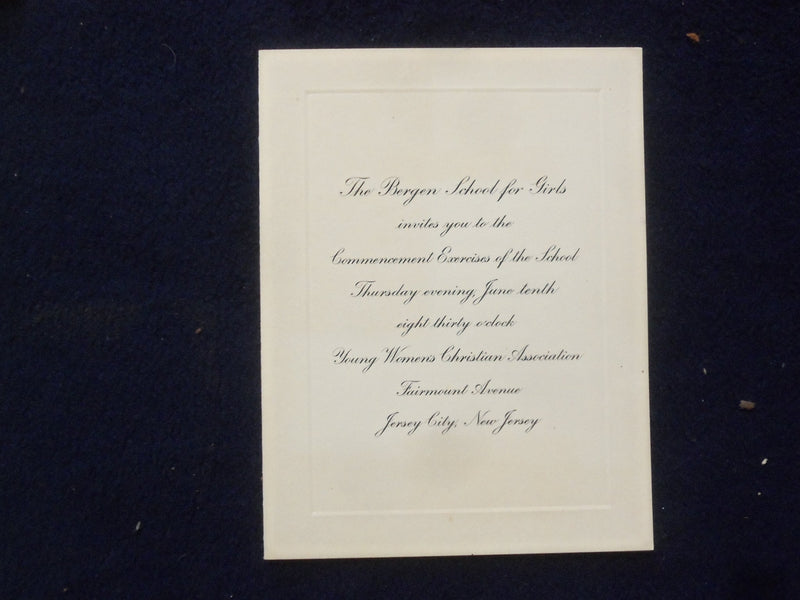 The Bergen School for Girls
invites you to the
Commencement Exercises of the School
Thursday evening, June tenth
eight thirty o'clock
Young Women's Christian Association
Fairmount Avenue
Jersey City, New Jersey